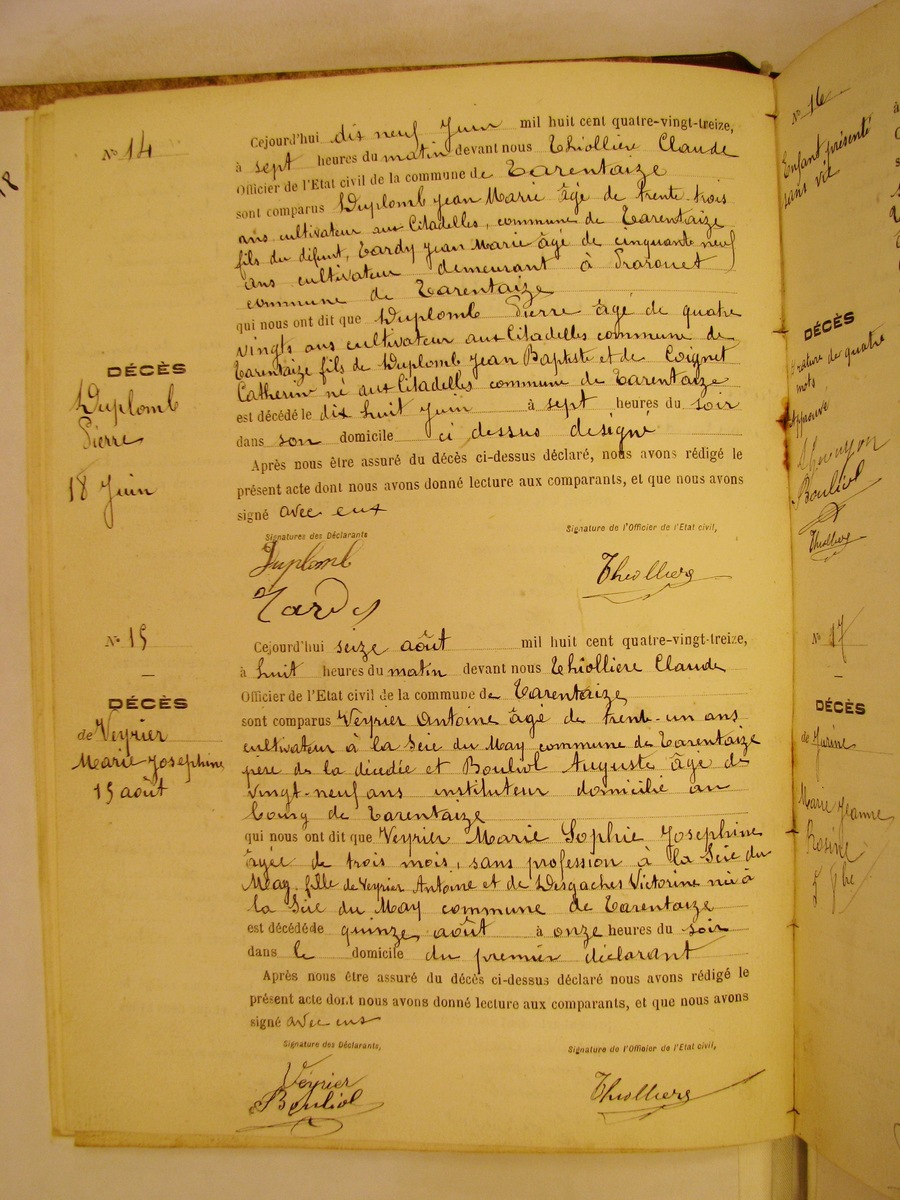 18
Nº 14
Cejourd'hui dix neuf Juin mil huit cent quatre-vingt-treize,
à sept heures du matin devant nous Thiollière Claude
Officier de l'Etat civil de la commune de Tarentaize
sont comparus Duplomb Jean Marie âgé de trente-trois
ans cultivateur aux Citadelles, commune de Tarentaize
fils du défunt, Tardy Jean Marie âgé de cinquante neuf
ans cultivateur demeurant à Prarouet
commune de Tarentaize
qui nous ont dit que Duplomb Pierre âgé de quatre
vingts ans cultivateur aux Citadelles commune de
Tarentaize fils de Duplomb Jean Baptiste et de Coignet
Catherin né aux Citadelles commune de Tarentaize
est décédé le dix huit Juin à sept heures du soir
dans son domicile ci dessus designé
Après nous être assuré du décès ci-dessus déclaré, nous avons rédigé le
présent acte dont nous avons donné lecture aux comparants, et que nous avons
signé avec eux
DÉCÈS
Duplomb
Pierre
18 Juin
Signatures des Déclarants
Signature de l'Officier de l'Etat civil,
Duplomb
Thiolliere
Tardy
Nº 15
DÉCÈS
de Veyrier
Marie Josephine
15 août
Cejourd'hui seize août mil huit cent quatre-vingt-treize,
à huit heures du matin devant nous Thiollière Claude
Officier de l'Etat civil de la commune de Tarentaize
sont comparus Veyrier Antoine âgé de trente-un ans
cultivateur à la Scie du May commune de Tarentaize
père de la décédée et Bouliol Auguste âgé de
vingt-neuf ans instituteur domicilié au
bourg de Tarentaize
qui nous ont dit que Veyrier Marie Sophie Josephine
âgée de trois mois, sans profession à la Scie du
May, fille de Veyrier Antoine et de Desgaches Victorine née à
la Scie du May commune de Tarentaize
est décédée quinze août à onze heures du soir
dans le domicile du premier déclarant
Après nous être assuré du décès ci-dessus déclaré nous avons rédigé le
présent acte dont nous avons donné lecture aux comparants, et que nous avons
signé avec eux
Signature des Déclarants,
Signature de l'Officier de l'Etat civil,
Veyrier
Bouliol
Thiolliere
Nº 16
Enfant présenté
sans vie
DÉCÈS
Rature de quatre
mots
Approuvé
Bouliol
Thiolliere
Nº 17
DÉCÈS
de Jurine
Marie Jeanne
Rosine